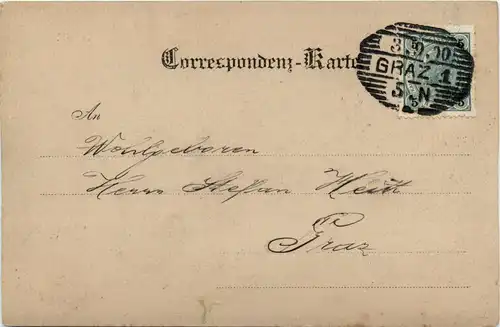 Correspondenz-Karte
GRAZ 1
5 N
An
Wohlgeboren
Herrn Stefan
Graz